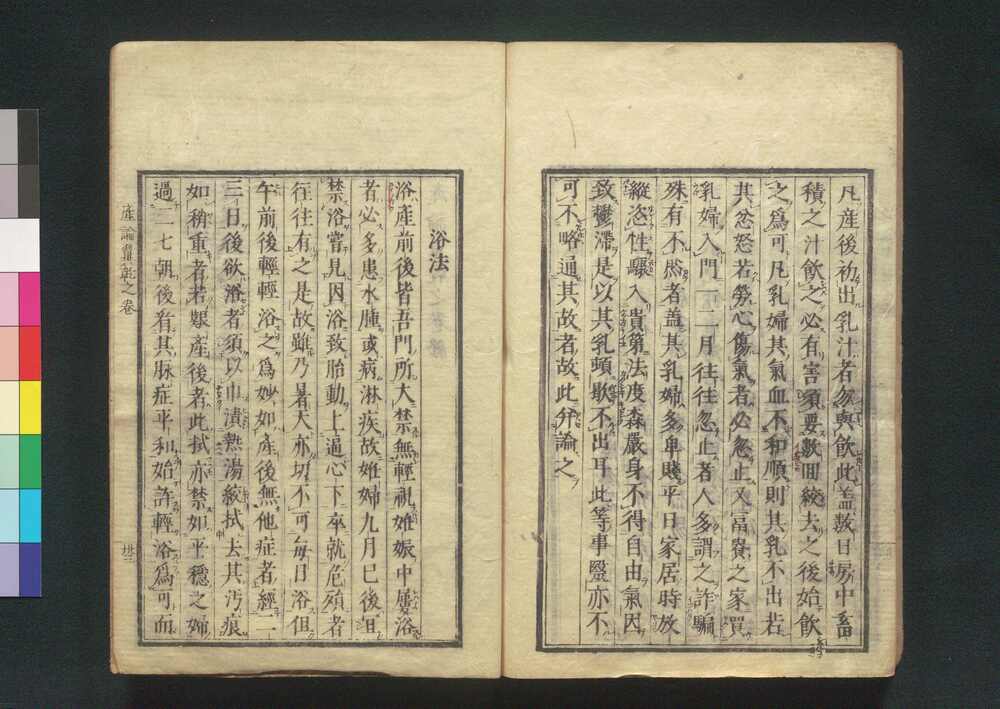 凡産後初出乳汁者勿與飲此盖數日房中畜
積之汁飲之必有害須要數囬絞去之後始飲
之爲可凡乳婦其氣血不和順則其乳不出若
其忿怒若勞心傷氣者必忽止又富寮之家買
乳婦入門一二月往往忽止者人多謂之詐騙
殊有不然者盖其乳婦多卑賤平日家居時放
縱恣性驟入貴第法度森嚴身不得自由氣因
致鬱滯是以其乳頓歇不出耳此等事毉亦不
可不略通其故者故此弁論之
浴法
浴産前後皆吾門所大禁無輕視姙娠中屢浴
者必多患水腫或病淋疾故姙婦九月已後沮
禁浴嘗見因浴致胎動上逼心下卒就危殆者
往往有之是故雖乃暑天亦切不可每日浴但
午前後輕輕浴之爲妙如産後無他症者經二
三日後欲浴者須以巾漬熱湯絞拭去其汚痕
如稍重者若艱産後者此拭亦禁如平穩之婦
過二七朝後看其脉症平和始許輕浴爲可而
産論翼乾之卷
卅三